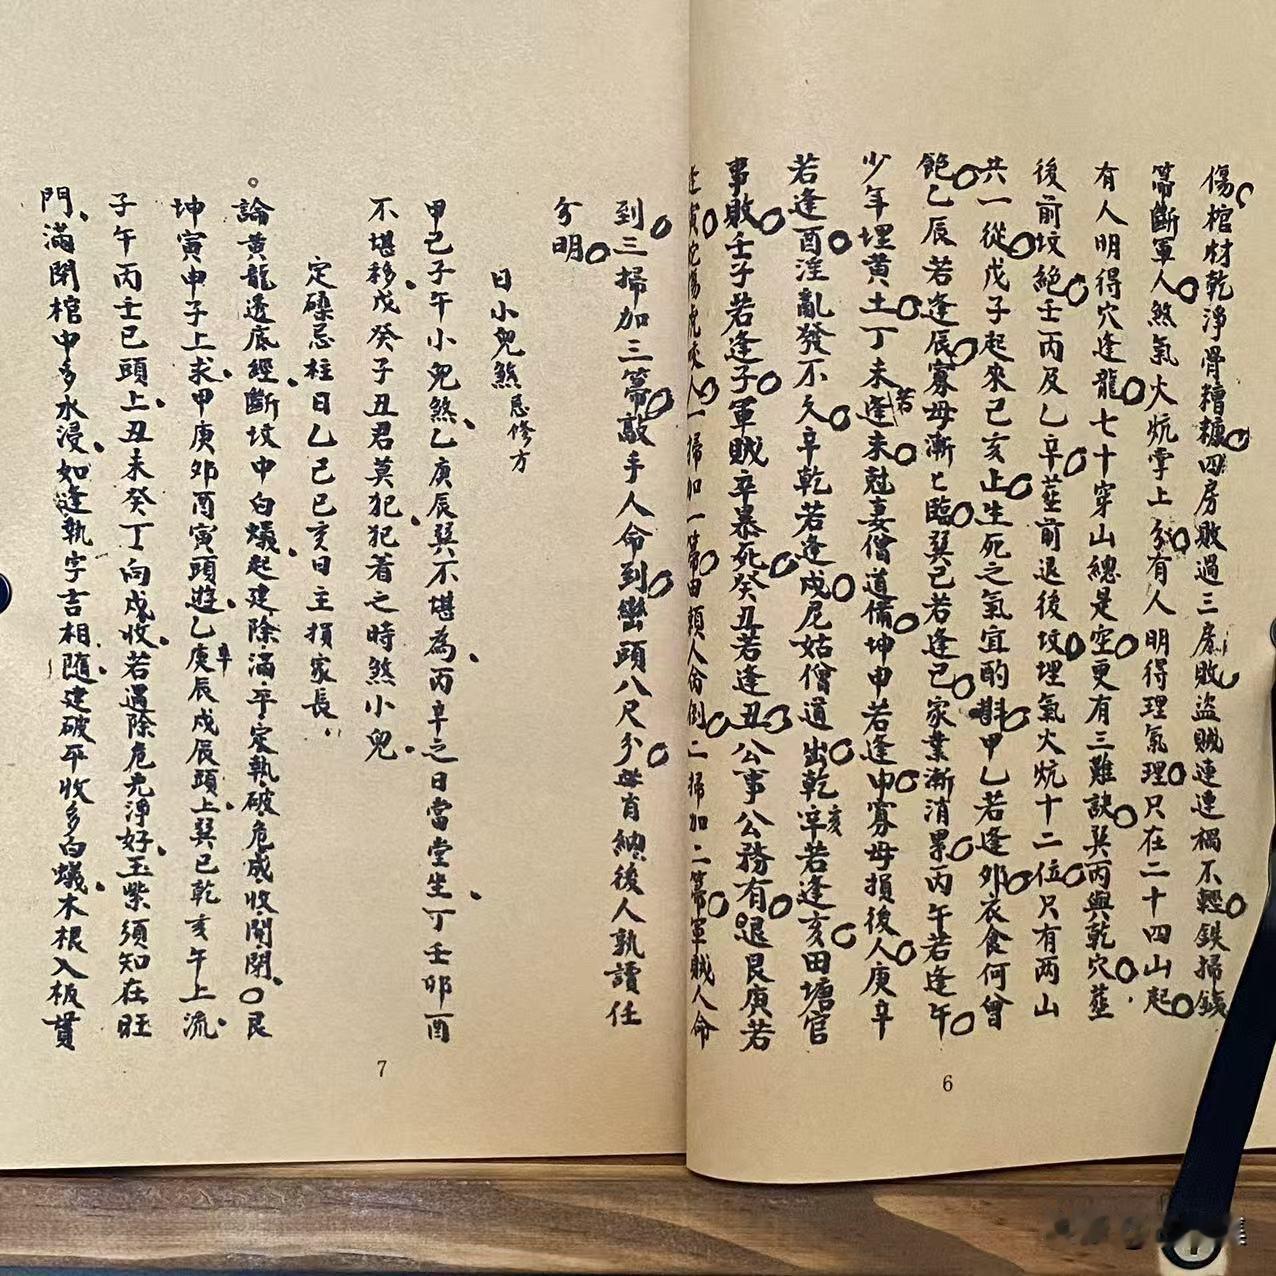 傷棺材乾淨骨糟糠四房敗過三房敗盜賊連連禍不輕鉄掃鉄
箒斷軍人煞氣火炕掌上分有人明得理氣理只在二十四山起
有人明得穴逢龍七十穿山總是空更有三難訣巽丙與乾穴葬
後前坟絕壬丙及乙辛葬前退後坟埋氣火炕十二位只有两山
共一從戊子起來己亥止生死之氣宜酌斟甲乙若逢卯衣食何曾
飽乙辰若逢辰寡母漸匕臨巽已若逢已家業漸消累丙午若逢午
少年埋黄土丁未若逢未尅妻僧道備坤申若逢申寡母損後人庚辛
若逢酉淫亂發不久辛乾若逢戍尼姑僧道出乾亥若逢亥田塘官
事敗壬子若逢子軍賊卒暴死癸丑若逢丑公事公務有退艮庚若
逢寅蛇傷虎咬人一掃加一箒田賴人命倒二掃加二箒軍賊人命
到三掃加三箒敲手人命到巒頭八尺分毋肯總後人孰讀任
分明
日小兒煞忌修方
甲己子午小兒煞乙庚辰巽不堪為丙辛之日當堂坐丁壬卯酉
不堪移戊癸子丑君莫犯犯著之時煞小兒
定磉忌柱日乙己巳亥日主損家長
論黃龍透底經斷坟中白蟻起建除滿平定執破危成收開閉艮
坤寅申子上求甲庚卯酉寅頭遊乙辛庚辰戍辰頭上巽巳乾亥午上流
子午丙壬巳頭上丑未癸丁向戍收若遇除危尭淨好玉紫須知在旺
門滿閉棺中多水浸如逢執字吉相隨建破平收多白蟻木根入板貫
7
6